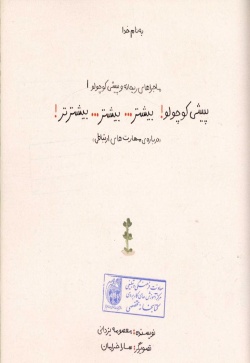 به نام خدا
ماجراهای ریحانه و پیشی کوچولو ۱
پیشی کوچولو! بیشتر... بیشتر... بیشترتر!
(درباره‌ی مهارت‌های ارتباطی)
کتابخانه تخصصی
نویسنده: معصومه یزدانی
تصویرگر: سارا خرامان